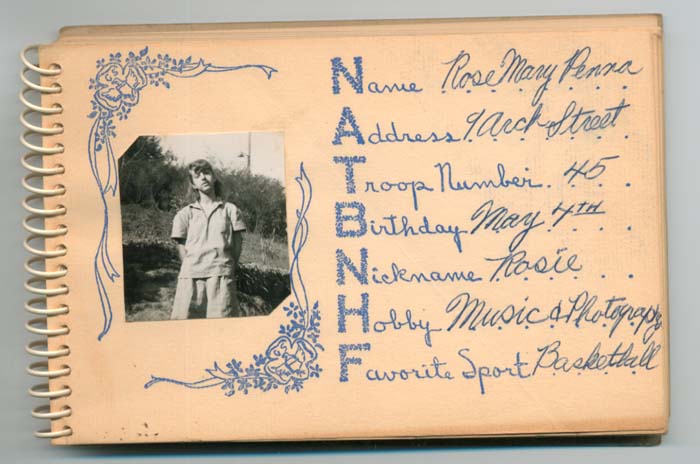 Name Rose Mary Penna
Address 9 Arch Street
Troop Number 45
Birthday May 4TH
Nickname Rosie
Hobby Music & Photography
Favorite Sport Basketball